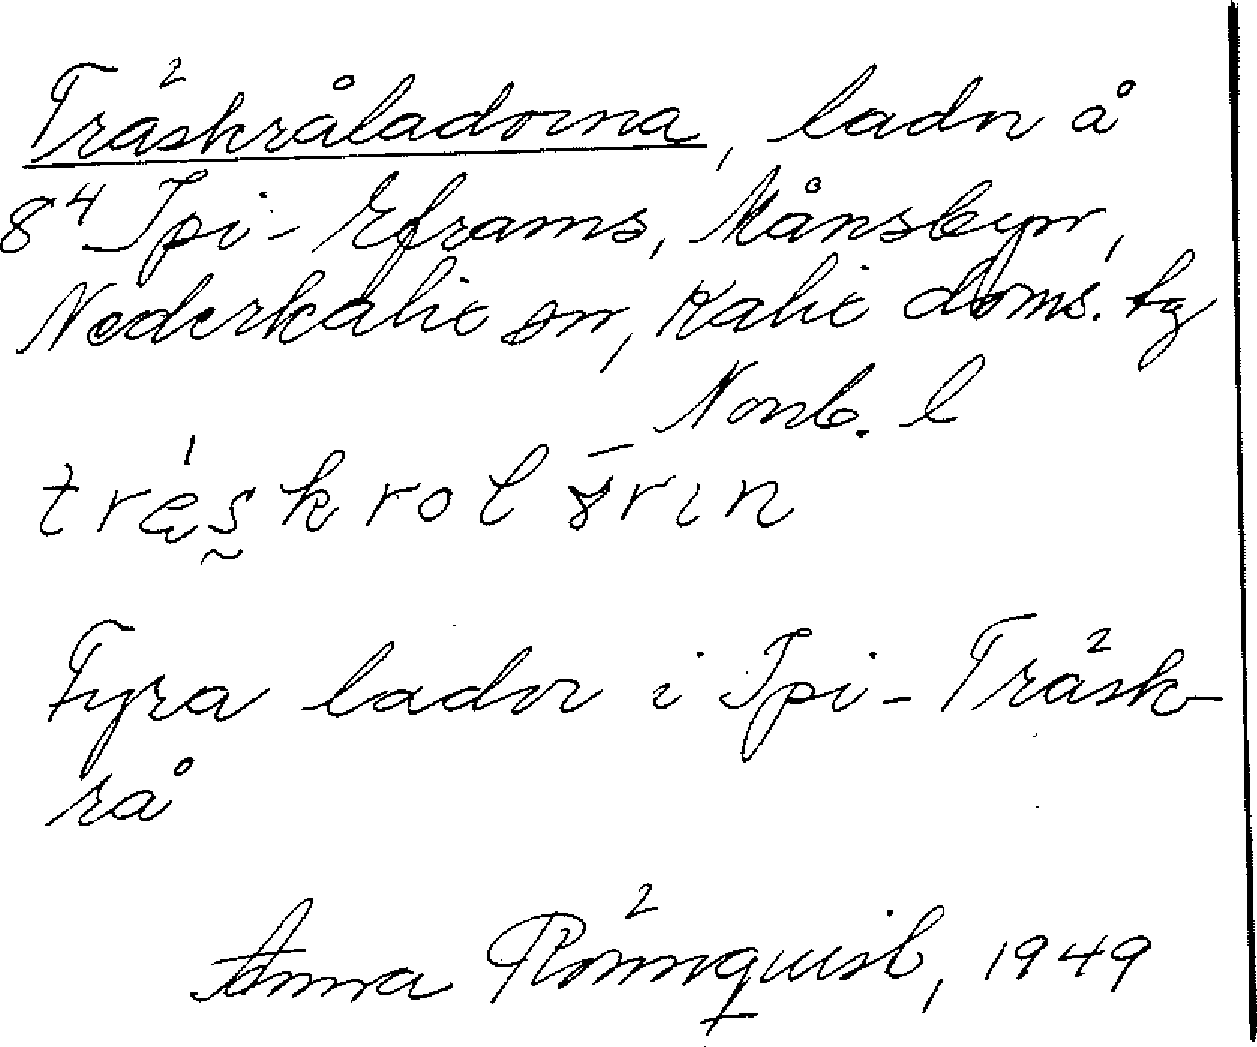 Träskråladorna, lador å
8⁴ Ipi-Eframs, Månsbyn,
Nederkalix sn, Kalix doms. tg
Norrb. l
Fyra lador i Ipi-Träsk-
rå
Anna Rönnquist, 1949